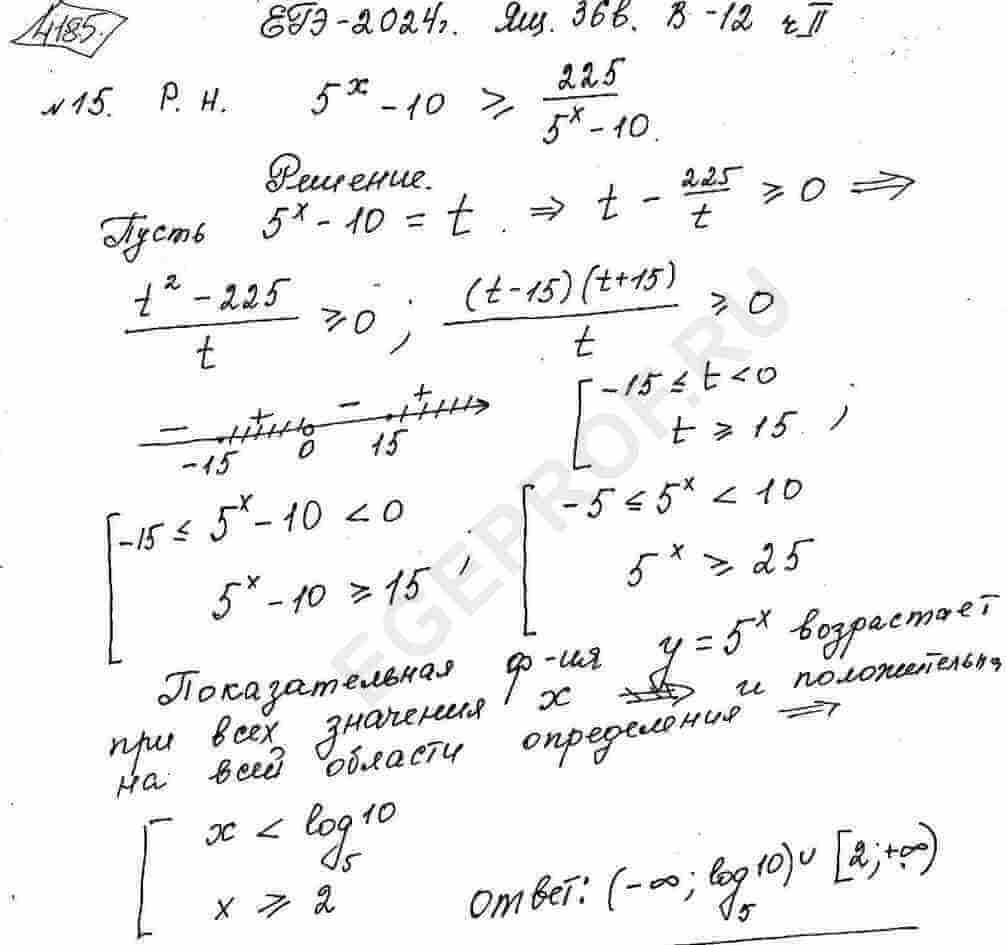 4185.
ЕГЭ-2024г. Ящ. 36в. В-12 ч II
№15. Р. Н. 5^x - 10 ≥ 225/(5^x - 10).
Решение.
Пусть 5^x - 10 = t. ⇒ t - 225/t ≥ 0 ⇒
(t² - 225)/t ≥ 0; ((t-15)(t+15))/t ≥ 0
- + - +
-15 0 15
[ -15 ≤ t < 0
t ≥ 15;
[ -15 ≤ 5^x - 10 < 0
5^x - 10 ≥ 15;
[ -5 ≤ 5^x < 10
5^x ≥ 25
Показательная ф-ия y = 5^x возрастает
при всех значения x и положительна
на всей области определения ⇒
[ x < log_5 10
x ≥ 2
Ответ: (-∞; log_5 10) ∪ [2; +∞)
EGEPROF.RU